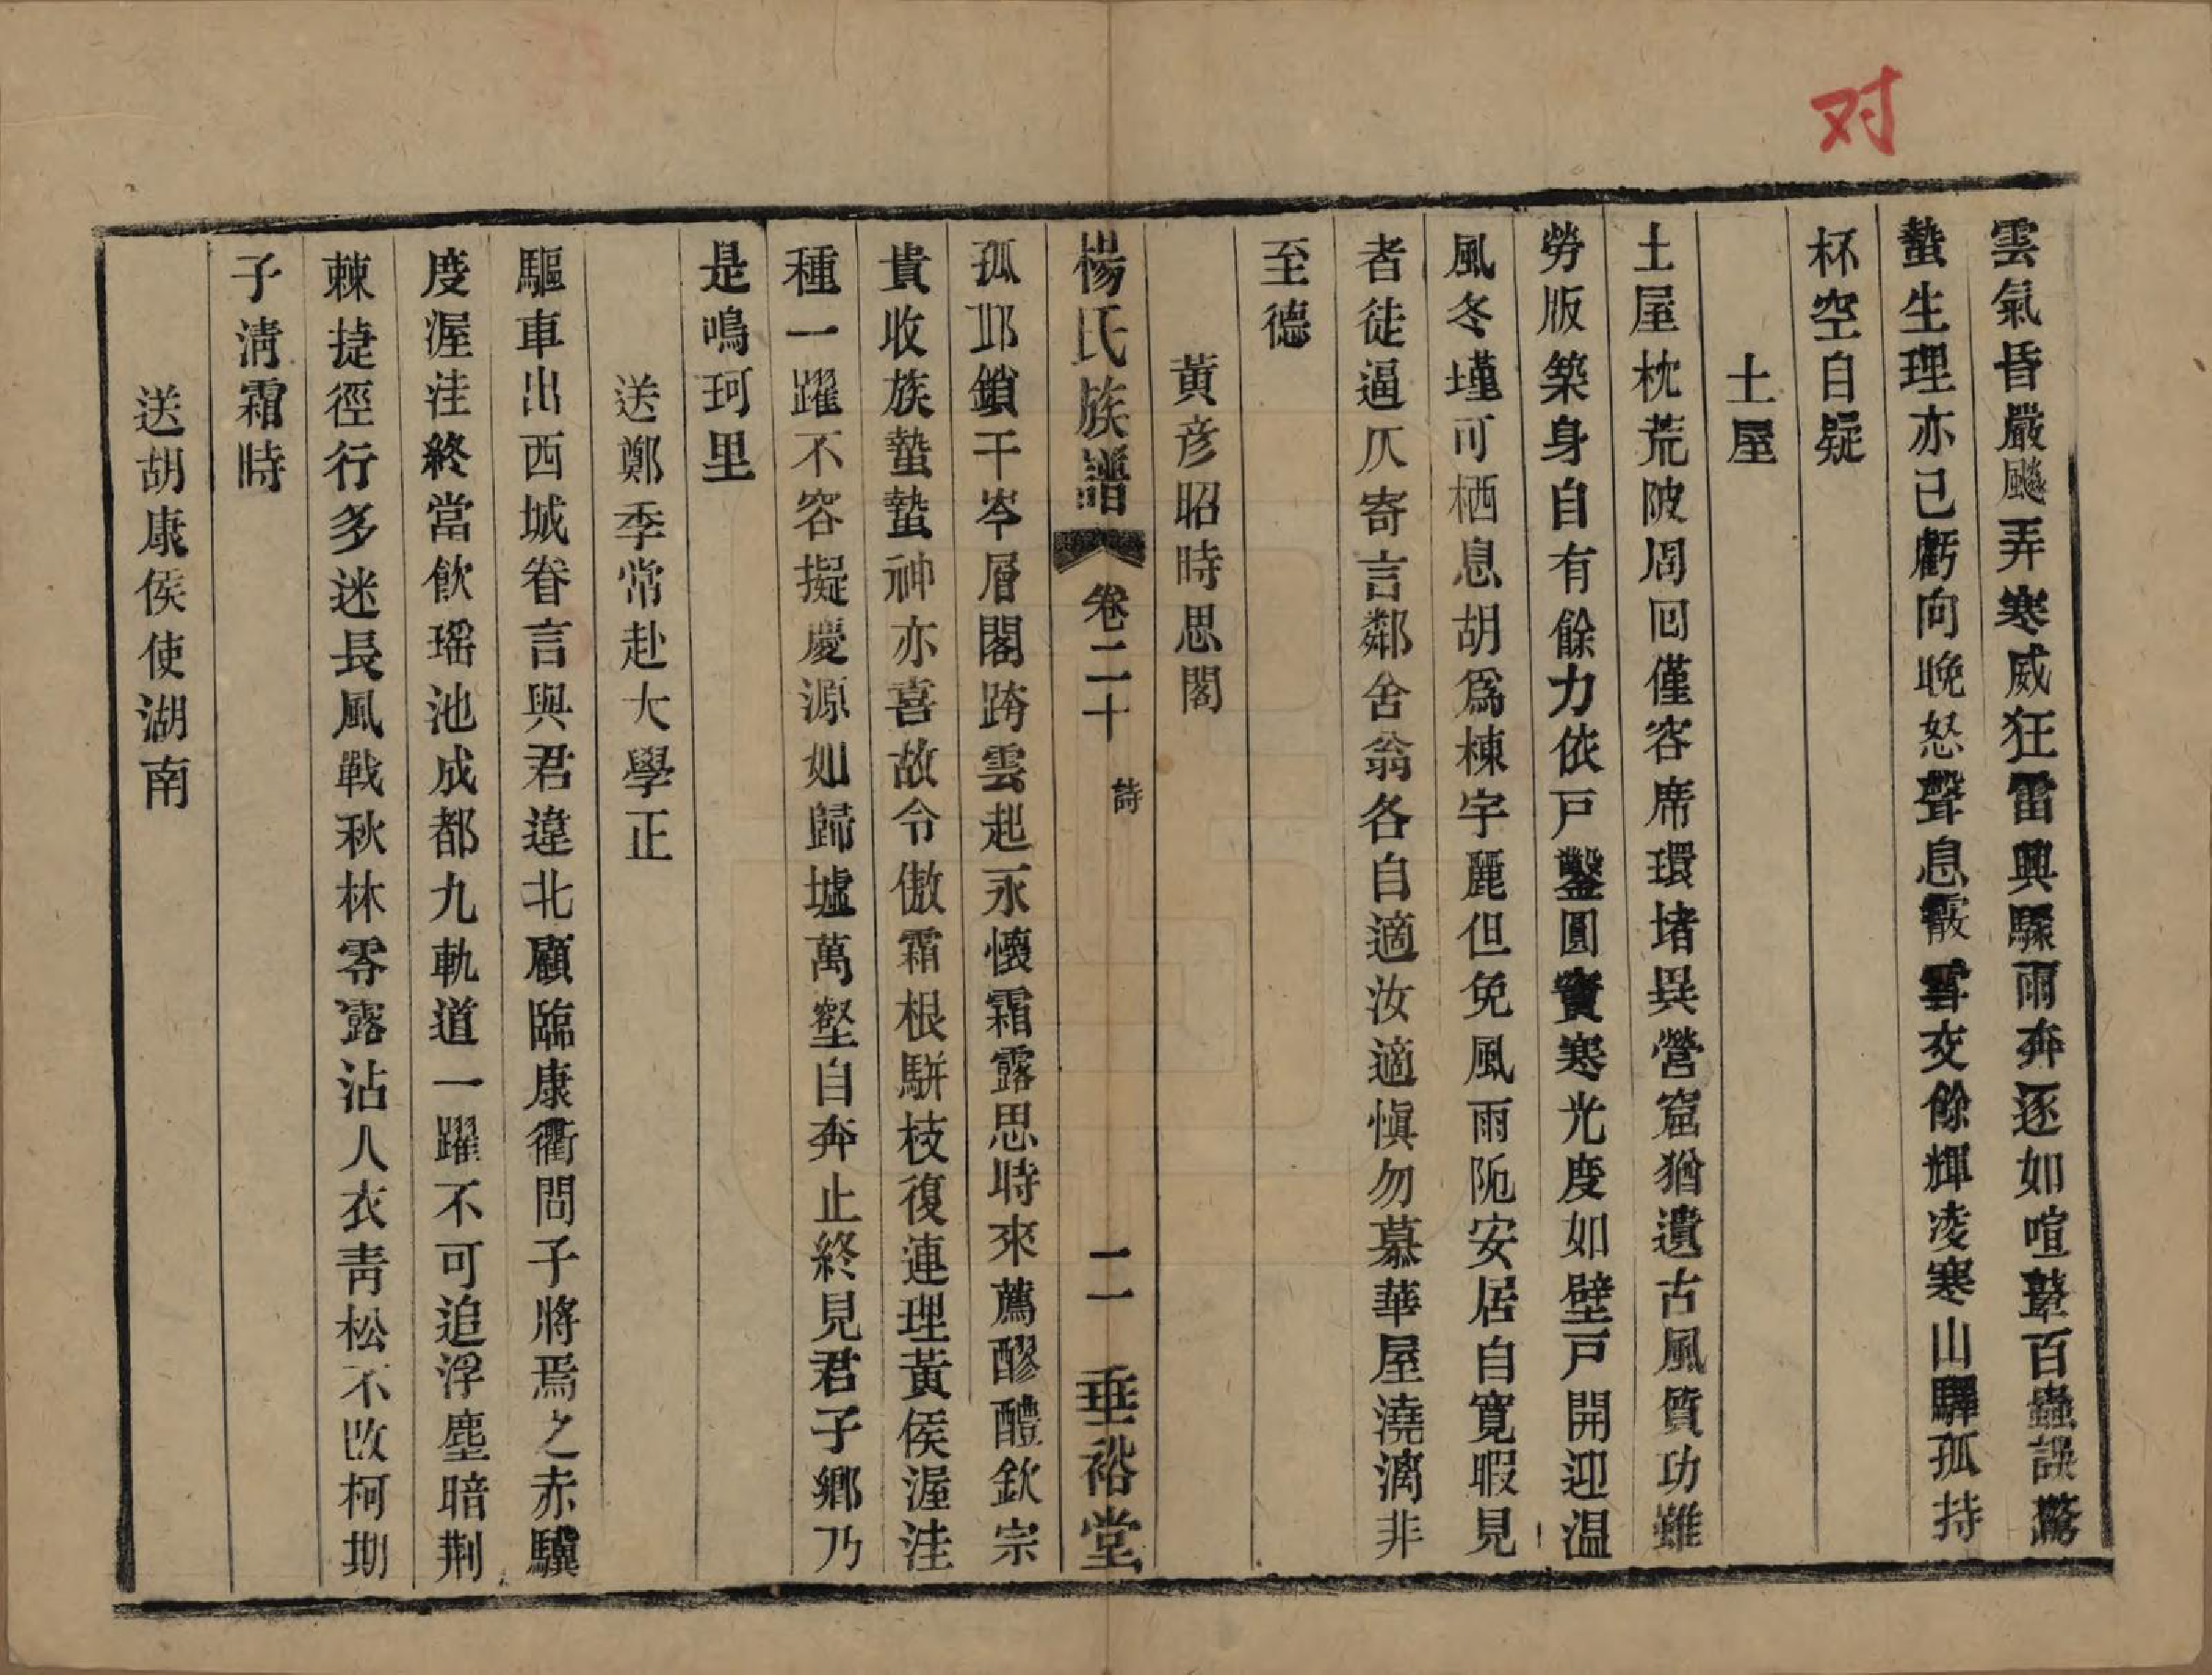 对
雲氣昏嚴飈弄寒威狂雷興驟雨奔逐如喧鼙百蟲誤驚
蟄生理亦已虧向晚怒聲息霰雪交餘輝凌寒山驛孤持
杯空自疑
土屋
土屋枕荒陂周回僅容席環堵異營窟猶遺古風質功雖
勞版築身自有餘力依戸鑿圓竇寒光度如壁戸開迎温
風冬墐可栖息胡爲棟宇麗但免風雨阨安居自寬暇見
者徒逼仄寄言鄰舍翁各自適汝適愼勿慕華屋澆漓非
至德
黃彥昭時思閣
楊氏族譜 卷二十 詩 二 垂裕堂
孤邛鎖干岑層閣跨雲起永懷霜露思時來薦醪醴欽宗
貴收族蟄蟄神亦喜故令傲霜根駢枝復連理黃侯渥洼
種一躍不容擬慶源如歸墟萬壑自奔止終見君子鄉乃
是鳴珂里
送鄭季常赴大學正
驅車出西城眷言與君違北顧臨康衢問子將焉之赤驥
度渥洼終當飲瑶池成都九軌道一躍不可追浮塵暗荆
棘捷徑行多迷長風戰秋林零露沾人衣靑松不改柯期
子淸霜時
送胡康侯使湖南